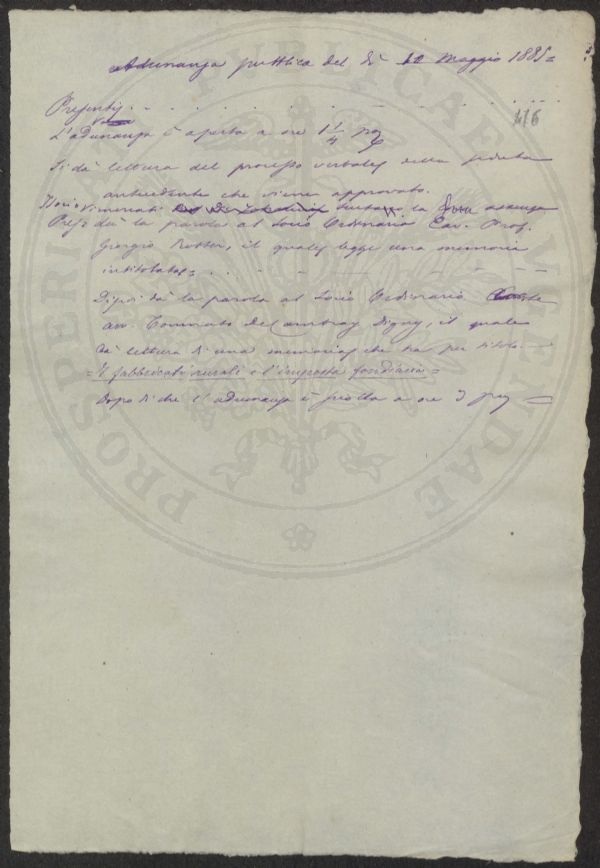 Adunanza pubblica del dì 12 Maggio 1885 =
Presenti
216
L'adunanza è aperta a ore 1 1/4 po
Si dà lettura del processo verbale della seduta
antecedente che viene approvato.
la sua assenza
Pres. dà la parola al Socio Ordinario Cav. Prof.
Giorgio Roster, il quale legge una memoria
intitolata =
Dipoi dà la parola al Socio Ordinario
Av. Tommaso De Cambray Digny, il quale
dà lettura di una memoria che ha per titolo
= I fabbricati rurali e l'imposta fondiaria =
Dopo di che l'adunanza è sciolta a ore 3 po =
PROSPERITATI PUBLICAE AUGENDAE